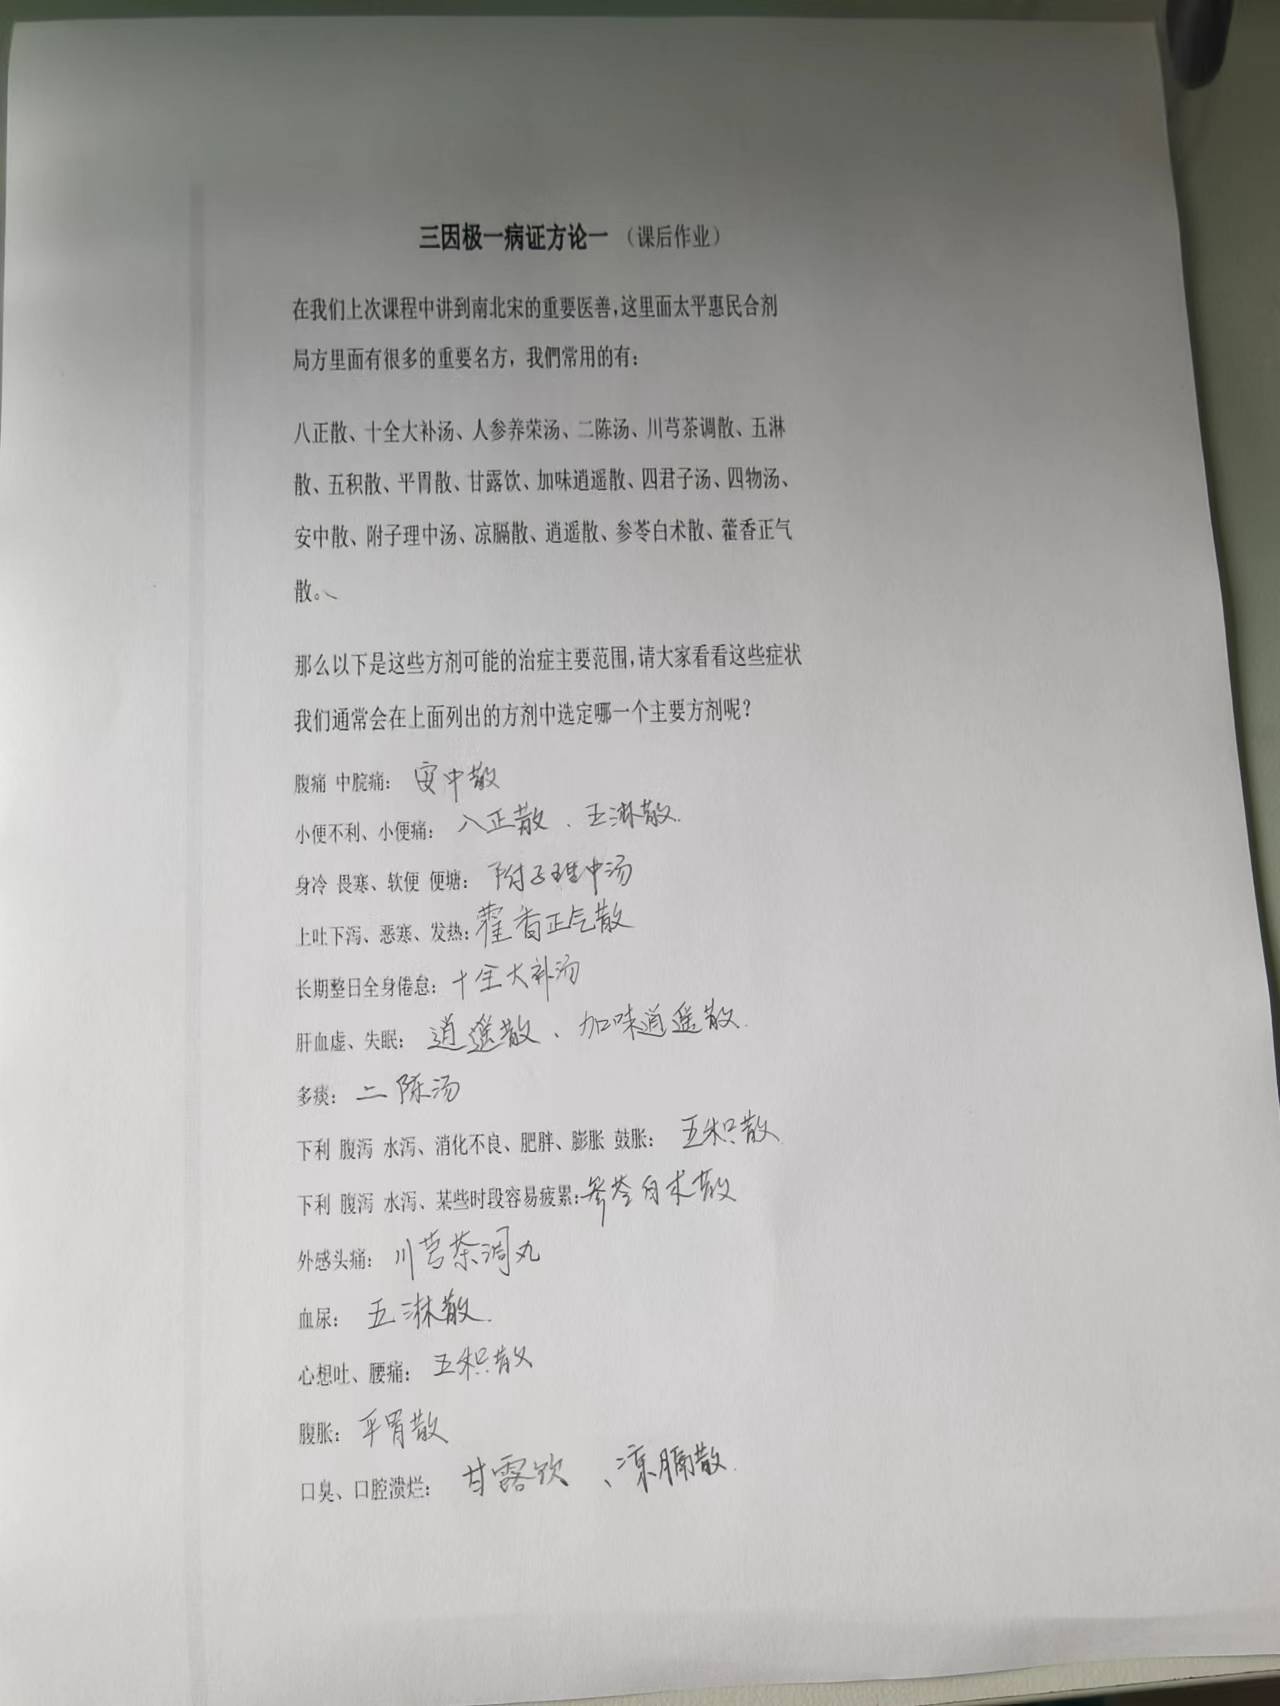 三因极一病证方论一 （课后作业）
在我们上次课程中讲到南北宋的重要医善，这里面太平惠民合剂
局方里面有很多的重要名方，我們常用的有：
八正散、十全大补汤、人参养荣汤、二陈汤、川芎茶调散、五淋
散、五积散、平胃散、甘露饮、加味逍遥散、四君子汤、四物汤、
安中散、附子理中汤、凉膈散、逍遥散、参苓白术散、藿香正气
散。
那么以下是这些方剂可能的治症主要范围，请大家看看这些症状
我们通常会在上面列出的方剂中选定哪一个主要方剂呢？
腹痛 中脘痛： 安中散
小便不利、小便痛： 八正散、五淋散.
身冷 畏寒、软便 便塘： 附子理中汤
上吐下泻、恶寒、发热：藿香正气散
长期整日全身倦怠： 十全大补汤
肝血虚、失眠： 逍遥散、加味逍遥散.
多痰： 二陈汤
下利 腹泻 水泻、消化不良、肥胖、膨胀 鼓胀： 五积散
下利 腹泻 水泻、某些时段容易疲累：参苓白术散
外感头痛： 川芎茶调丸
血尿： 五淋散.
心想吐、腰痛： 五积散
腹胀： 平胃散
口臭、口腔溃烂： 甘露饮、凉膈散.